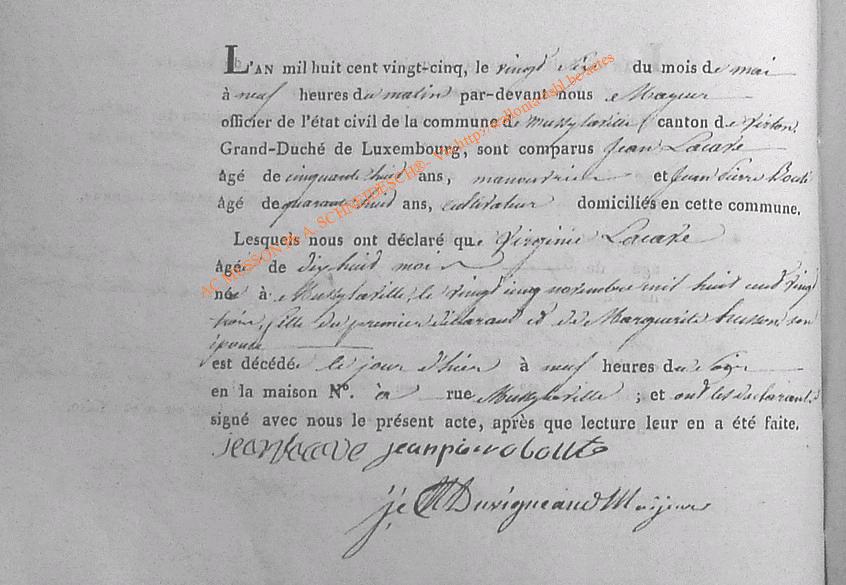 L'AN mil huit cent vingt-cinq, le vingt du mois de mai
à neuf heures du matin par-devant nous Mayeur
officier de l'état civil de la commune de mussylaville ( canton de virton
Grand-Duché de Luxembourg, sont comparus Jean Lacave
âgé de cinquante huit ans, manouvrier et Jean Pierre
âgé de quarante huit ans, cultivateur domiciliés en cette commune.
Lesquels nous ont déclaré que Virginie Lacave
âgée de dix huit mois
née à Mussylaville, le vingt cinq novembre mil huit cent vingt
trois, fille du premier déclarant et de Marguerite husson son
épouse
est décédée le jour d'hier à neuf heures du soir
en la maison N°. rue Mussylaville ; et ont les déclarants
signé avec nous le présent acte, après que lecture leur en a été faite.
jean lacave jean pierre
Duvigneaud Maÿeur
AC MUSSON de A. SCHNEIDESCH®- Via http://wallonia-asbl.be/actes